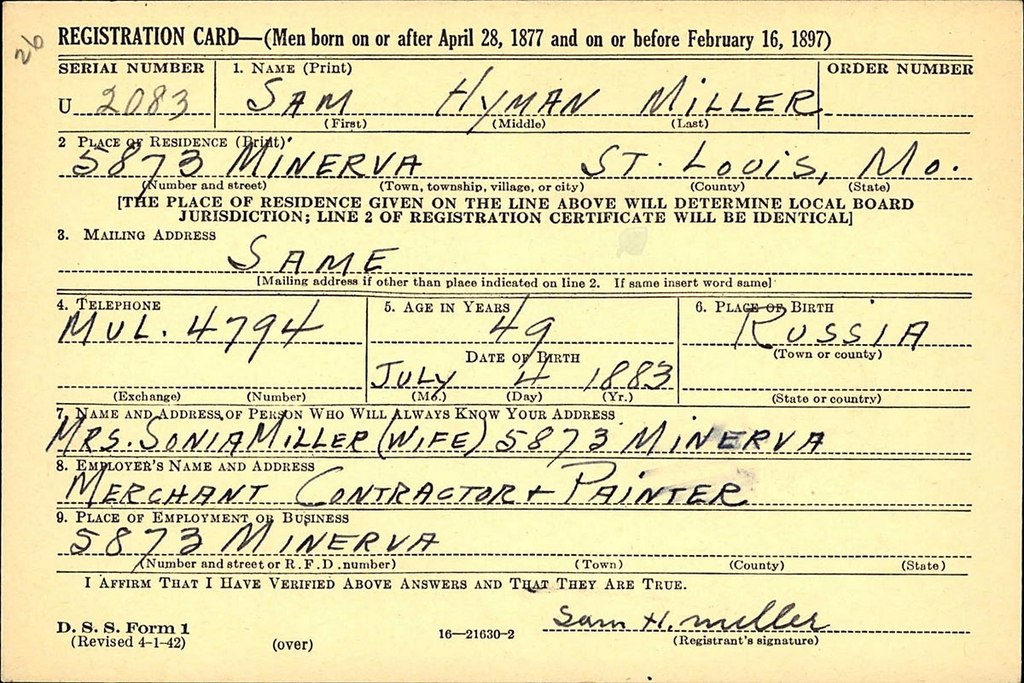 26
REGISTRATION CARD—(Men born on or after April 28, 1877 and on or before February 16, 1897)
SERIAL NUMBER 1. NAME (Print) ORDER NUMBER
U 2083 SAM HYMAN MILLER
(First) (Middle) (Last)
2 PLACE OF RESIDENCE (Print)
5873 MINERVA ST. LOUIS, MO.
(Number and street) (Town, township, village, or city) (County) (State)
[THE PLACE OF RESIDENCE GIVEN ON THE LINE ABOVE WILL DETERMINE LOCAL BOARD
JURISDICTION; LINE 2 OF REGISTRATION CERTIFICATE WILL BE IDENTICAL]
3. MAILING ADDRESS
SAME
[Mailing address if other than place indicated on line 2. If same insert word same]
4. TELEPHONE 5. AGE IN YEARS 6. PLACE OF BIRTH
MUL. 4794 49 RUSSIA
DATE OF BIRTH (Town or county)
JULY 4 1883
(Exchange) (Number) (Mo.) (Day) (Yr.) (State or country)
7. NAME AND ADDRESS OF PERSON WHO WILL ALWAYS KNOW YOUR ADDRESS
MRS. SONIA MILLER (WIFE) 5873 MINERVA
8. EMPLOYER'S NAME AND ADDRESS
MERCHANT CONTRACTOR + PAINTER
9. PLACE OF EMPLOYMENT OR BUSINESS
5873 MINERVA
(Number and street or R. F. D. number) (Town) (County) (State)
I AFFIRM THAT I HAVE VERIFIED ABOVE ANSWERS AND THAT THEY ARE TRUE.
Sam H. Miller
D. S. S. Form 1
(Revised 4-1-42) (over) 16—21630-2 (Registrant's signature)